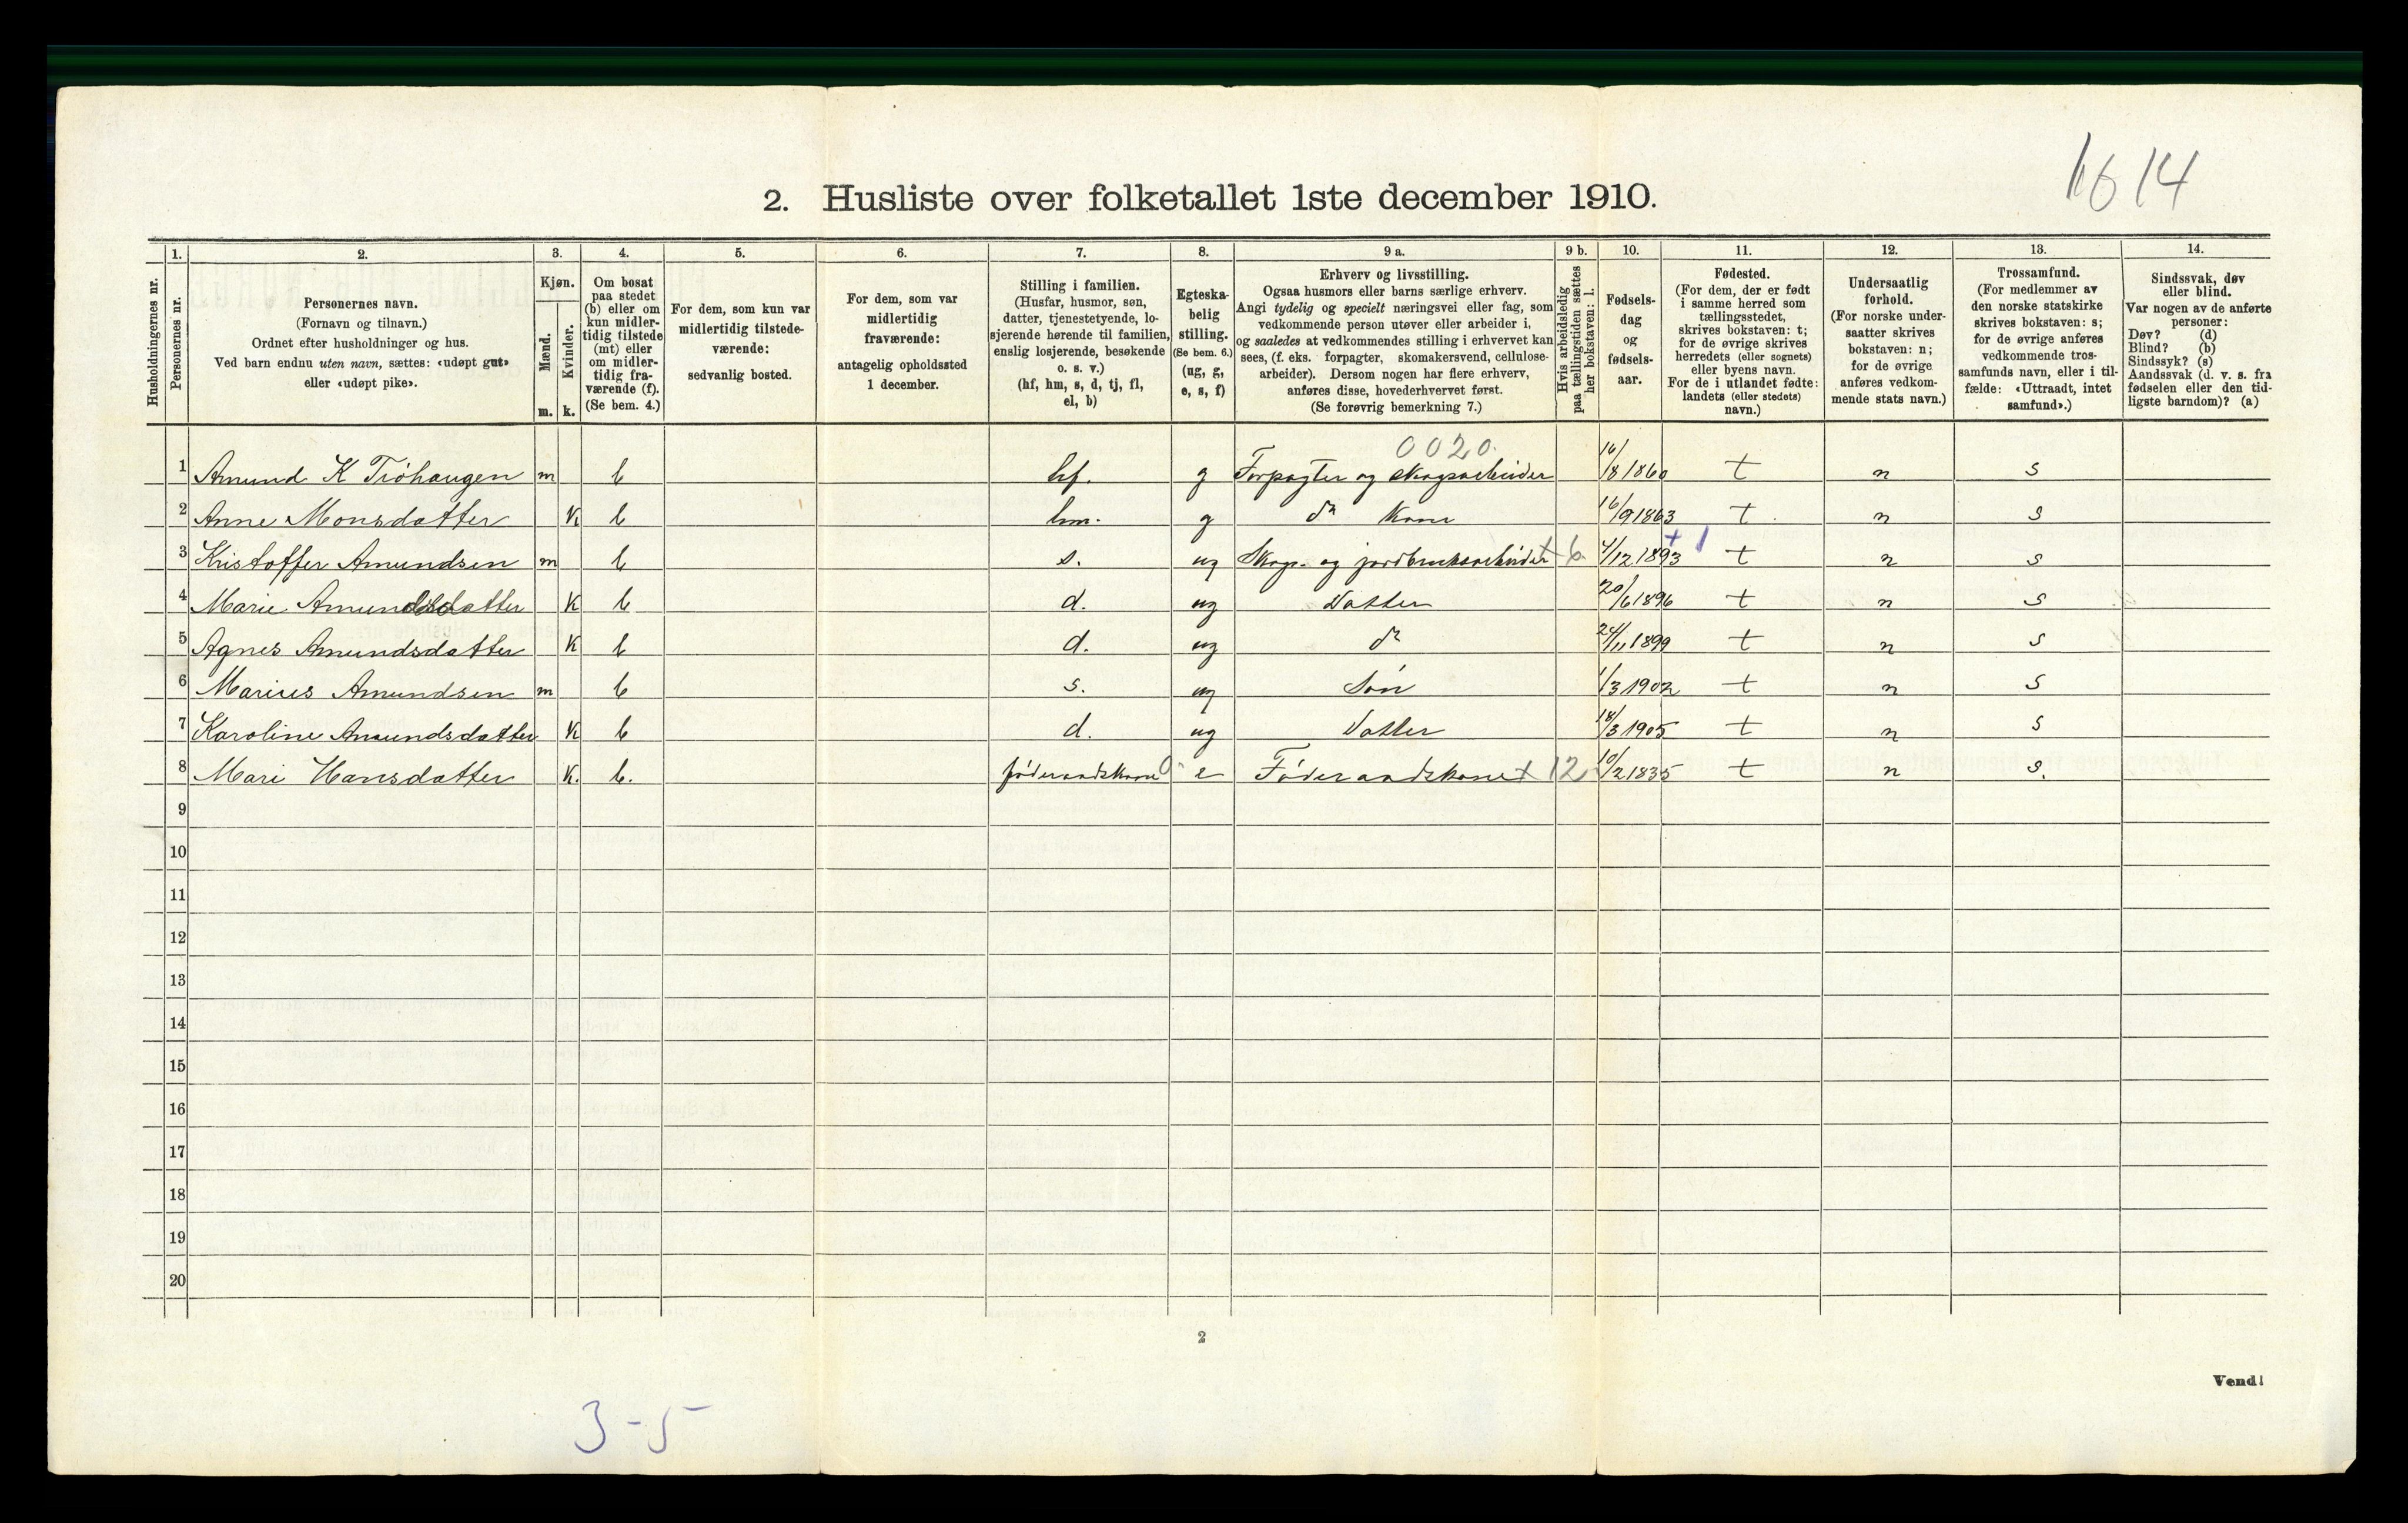 1614
2. Husliste over folketallet 1ste december 1910.
Husholdningernes nr.
1.
Personernes nr.
2.
Personernes navn.
(Fornavn og tilnavn.)
Ordnet efter husholdninger og hus.
Ved barn endnu uten navn, sættes: «udøpt gut»
eller «udøpt pike».
3.
Kjøn.
Mænd.
Kvinder.
m. k.
4.
Om bosat
paa stedet
(b) eller om
kun midler-
tidig tilstede
(mt) eller
om midler-
tidig fra-
værende (f).
(Se bem. 4.)
5.
For dem, som kun var
midlertidig tilstede-
værende:
sedvanlig bosted.
6.
For dem, som var
midlertidig
fraværende:
antagelig opholdssted
1 december.
7.
Stilling i familien.
(Husfar, husmor, søn,
datter, tjenestetyende, lo-
sjerende hørende til familien,
enslig losjerende, besøkende
o. s. v.)
(hf, hm, s, d, tj, fl,
el, b)
8.
Egteska-
belig
stilling.
(Se bem. 6.)
(ug, g,
e, s, f)
9 a.
Erhverv og livsstilling.
Ogsaa husmors eller barns særlige erhverv.
Angi tydelig og specielt næringsvei eller fag, som
vedkommende person utøver eller arbeider i,
og saaledes at vedkommendes stilling i erhvervet kan
sees, (f. eks. forpagter, skomakersvend, cellulose-
arbeider). Dersom nogen har flere erhverv,
anføres disse, hovederhvervet først.
(Se forøvrig bemerkning 7.)
9 b.
Hvis arbeidsledig
paa tællingstiden sættes
her bokstaven: l.
10.
Fødsels-
dag
og
fødsels-
aar.
11.
Fødested.
(For dem, der er født
i samme herred som
tællingsstedet,
skrives bokstaven: t;
for de øvrige skrives
herredets (eller sognets)
eller byens navn.
For de i utlandet fødte:
landets (eller stedets)
navn.)
12.
Undersaatlig
forhold.
(For norske under-
saatter skrives
bokstaven: n;
for de øvrige
anføres vedkom-
mende stats navn.)
13.
Trossamfund.
(For medlemmer av
den norske statskirke
skrives bokstaven: s;
for de øvrige anføres
vedkommende tros-
samfunds navn, eller i til-
fælde: «Uttraadt, intet
samfund».)
14.
Sindssvak, døv
eller blind.
Var nogen av de anførte
personer:
Døv? (d)
Blind? (b)
Sindssyk? (s)
Aandssvak (d. v. s. fra
fødselen eller den tid-
ligste barndom)? (a)
0020.
1 Amund K Tröhaugen m b hf. g Forpagter og skogsarbeider 16/8 1860 t n s
2 Anne Monsdatter K b hm. g do Kone 16/9 1863 t n s
3 Kristoffer Amundsen m b s. ug Skog- og jordbruksarbeider + 6 4/12 1893 + 1 t n s
4 Marie Amundsdatter K b d. ug Datter 20/6 1896 t n s
5 Agnes Amundsdatter K b d. ug do 24/11 1899 t n s
6 Marius Amundsen m b s. ug Sön 1/3 1902 t n s
7 Karoline Amundsdatter K b d. ug Datter 18/3 1905 t n s
8 Mari Hansdatter K. b. föderaadskone 0 e Föderaadskone + 12 10/2 1835 t n s.
9
10
11
12
13
14
15
16
17
18
19
20
2
Vend!
3-5